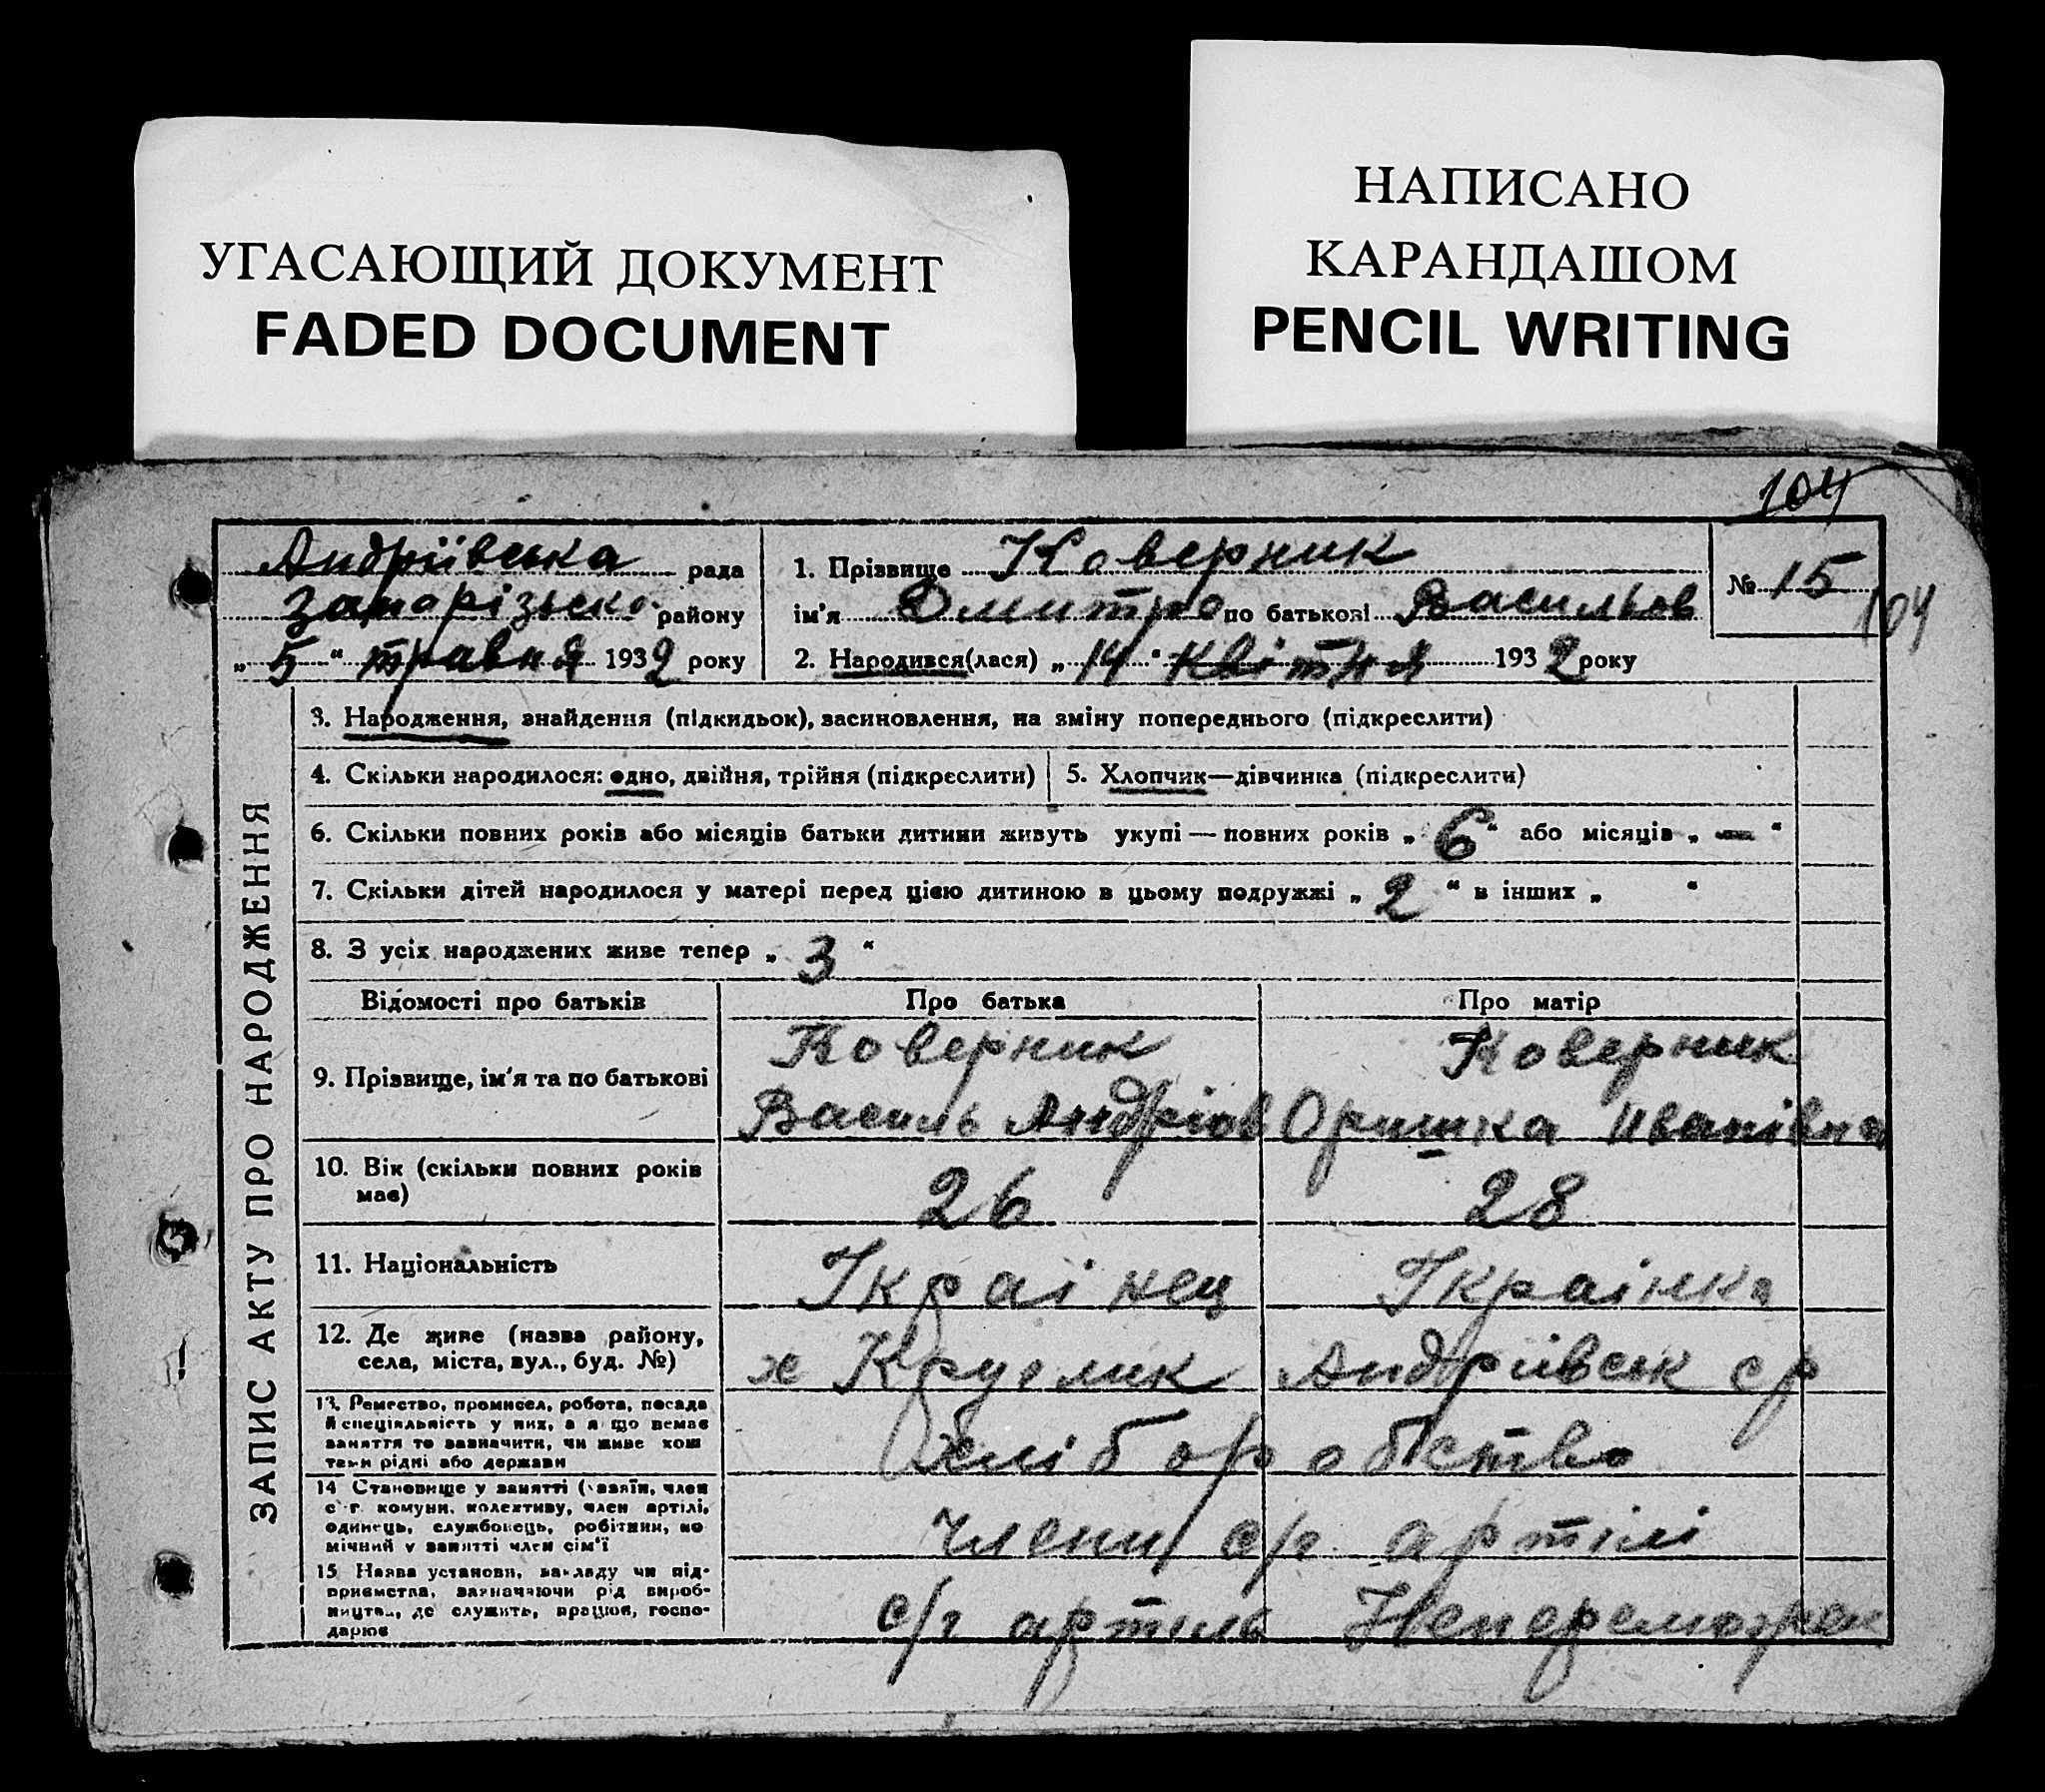 УГАСАЮЩИЙ ДОКУМЕНТ
FADED DOCUMENT
НАПИСАНО
КАРАНДАШОМ
PENCIL WRITING
104
Андріївська рада
Запорізько району
„5“ травня 1932 року
1. Прізвище Коверник
ім'я Дмитро по батькові Васильов
2. Народився(лася) „14“ квітня 1932 року
№ 15
104
ЗАПИС АКТУ ПРО НАРОДЖЕННЯ
3. Народження, знайдення (підкидьок), засиновлення, на зміну попереднього (підкреслити)
4. Скільки народилося: одно, двійня, трійня (підкреслити)
5. Хлопчик—дівчинка (підкреслити)
6. Скільки повних років або місяців батьки дитини живуть укупі — повних років „6“ або місяців „—“
7. Скільки дітей народилося у матері перед цією дитиною в цьому подружжі „2“ в інших „ “
8. З усіх народжених живе тепер „3“
Відомості про батьків Про батька Про матір
9. Прізвище, ім'я та по батькові
Коверник
Василь Андріов
Коверник
Оришка Иванівна
10. Вік (скільки повних років
має)
26 28
11. Національність
Украінец Украінка
12. Де живе (назва району,
села, міста, вул., буд. №)
х Круглик Андріївськ ср
13. Ремество, промисел, робота, посада
й спеціяльність у них, а якщо немає
заняття то зазначити, чи живе кош
тами рідні або держави
Хліборобство
14 Становище у занятті (хазяїн, член
с г. комуни, колективу, член артілі,
одинець, службовець, робітник, по
мічний у занятті член сім'ї
члени с/г артілі
15 Назва установи, закладу чи під-
приємства, зазначаючи рід вироб-
ництва, де служить, працює, госпо-
дарює
с/г артиль